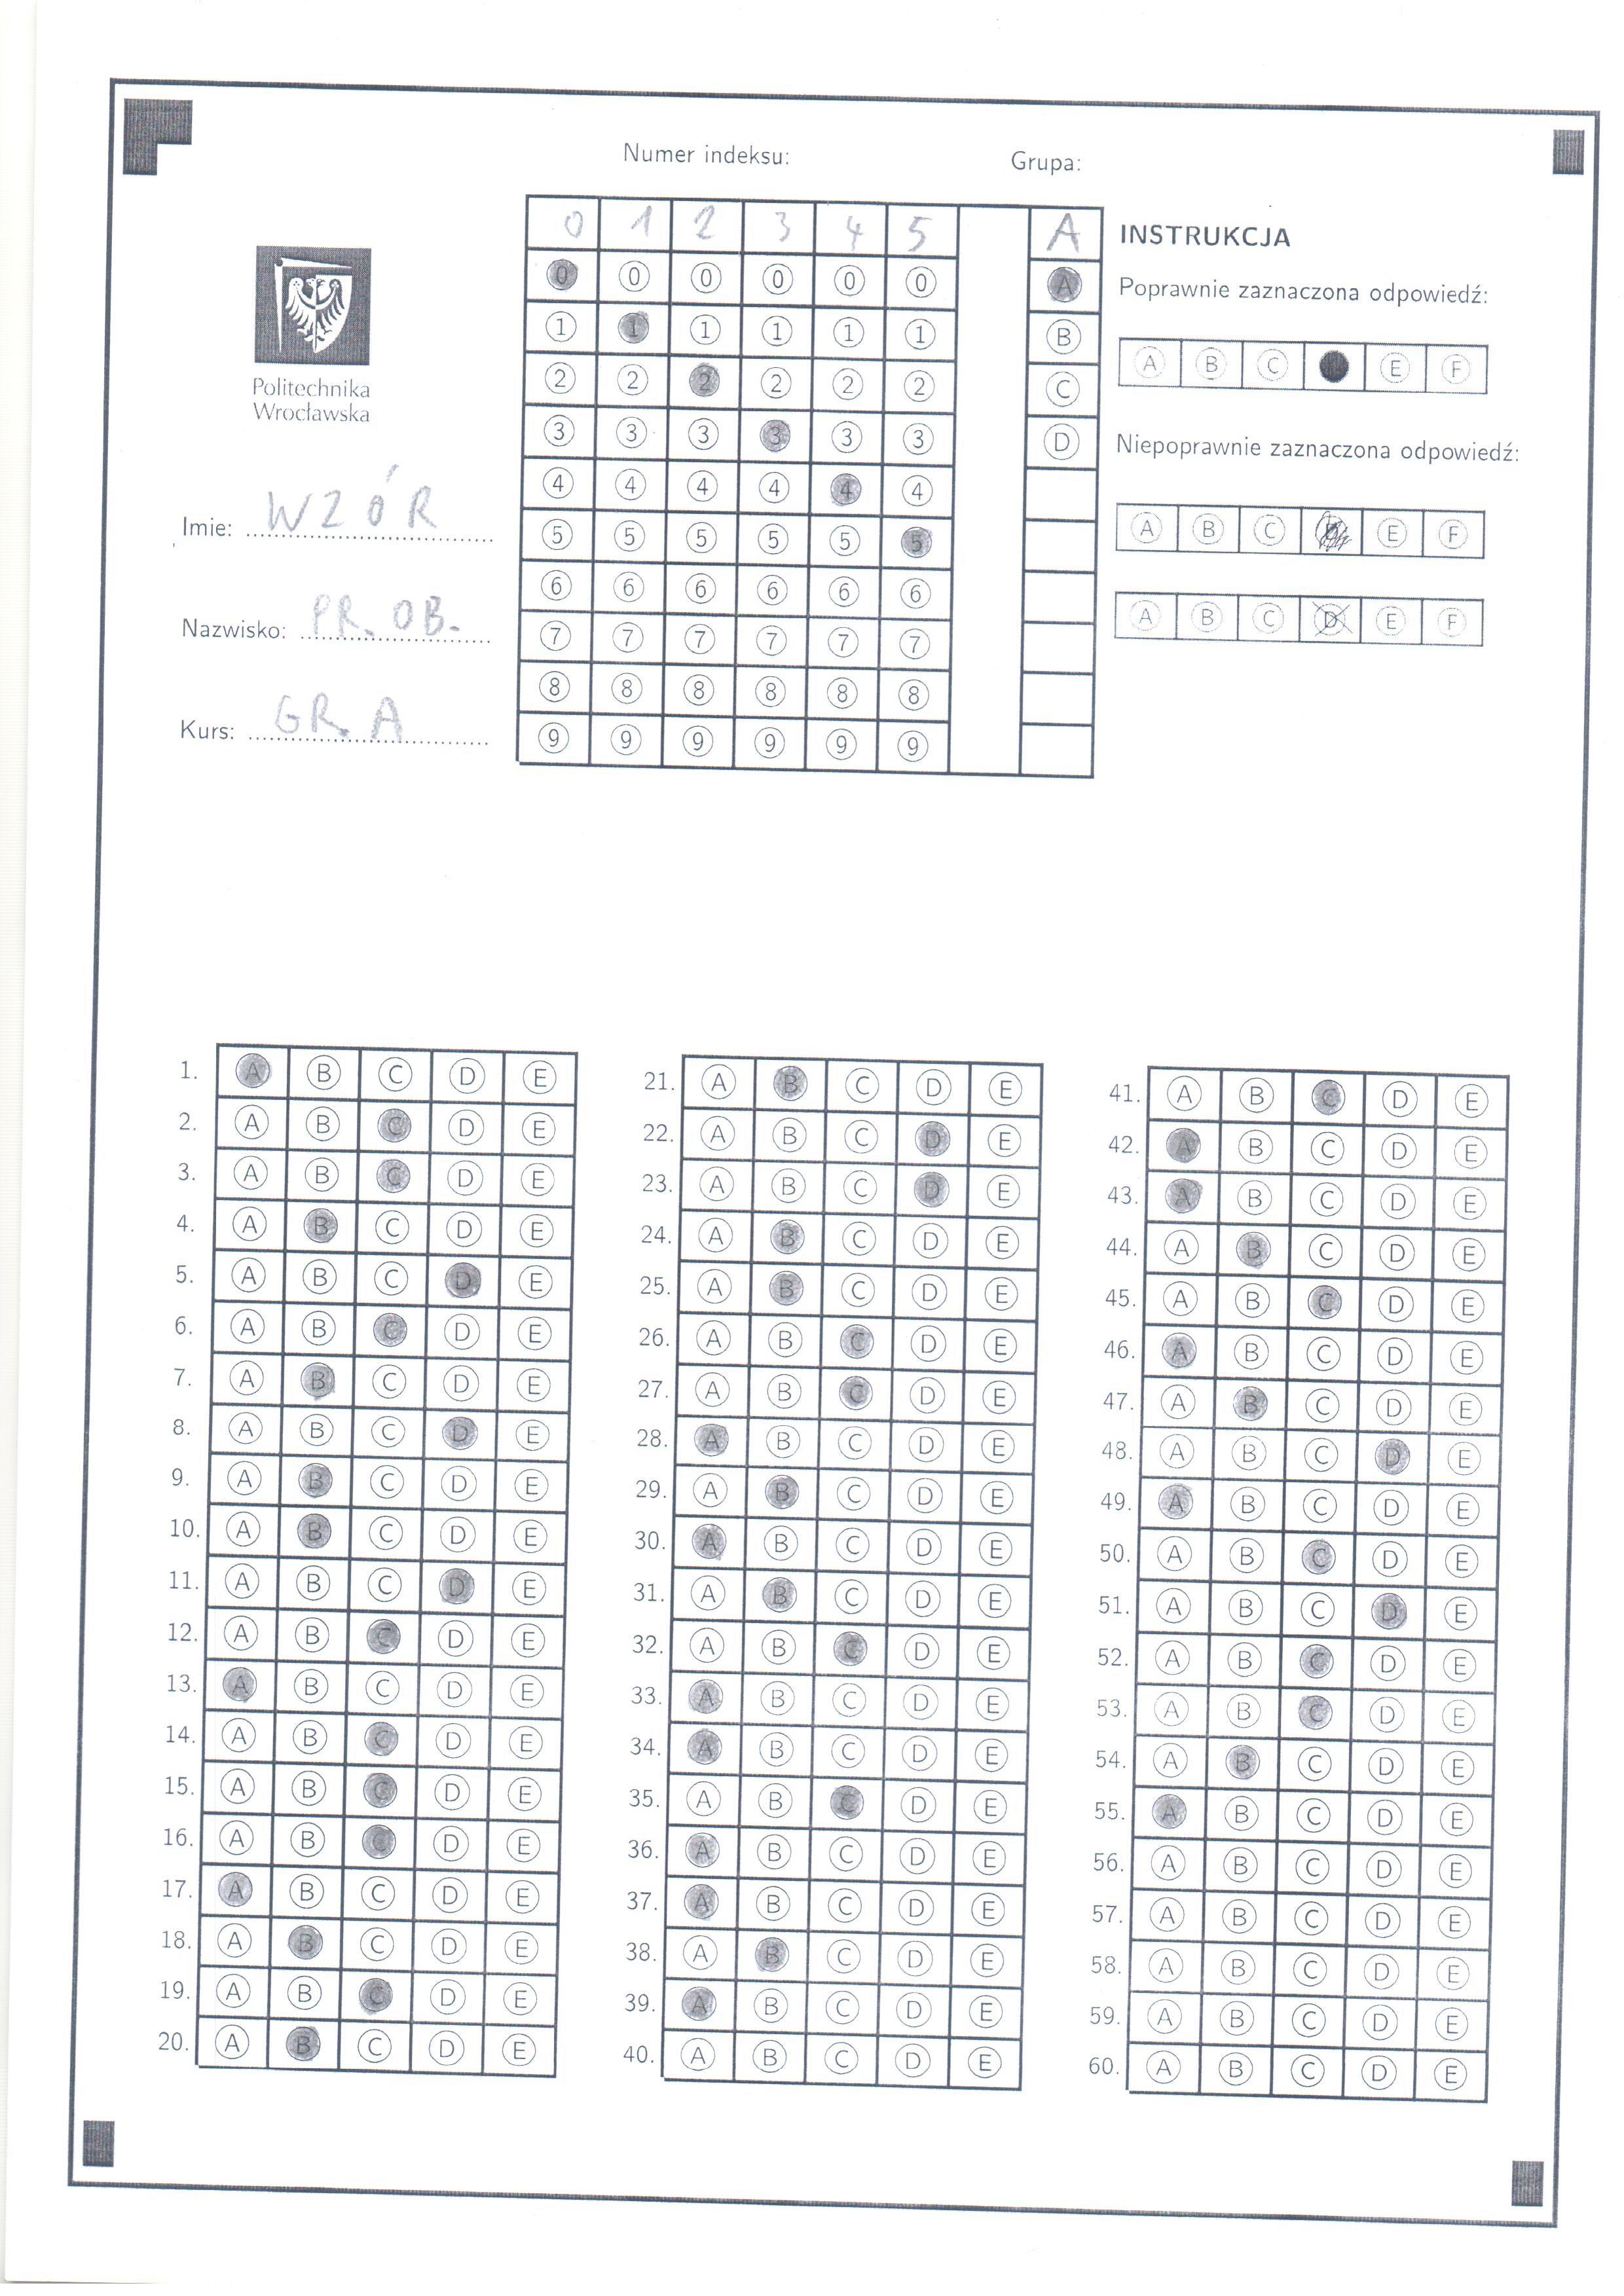 Numer indeksu: Grupa:
0 1 2 3 4 5 A
0 0 0 0 0 0 A
1 1 1 1 1 1 B
2 2 2 2 2 2 C
3 3 3 3 3 3 D
4 4 4 4 4 4
5 5 5 5 5 5
6 6 6 6 6 6
7 7 7 7 7 7
8 8 8 8 8 8
9 9 9 9 9 9
INSTRUKCJA
Poprawnie zaznaczona odpowiedź:
A B C E F
Niepoprawnie zaznaczona odpowiedź:
A B C E F
A B C D E F
Politechnika
Wrocławska
Imie: WZÓR
Nazwisko: PR. OB.
Kurs: GR. A
1. A B C D E
2. A B C D E
3. A B C D E
4. A B C D E
5. A B C D E
6. A B C D E
7. A B C D E
8. A B C D E
9. A B C D E
10. A B C D E
11. A B C D E
12. A B C D E
13. A B C D E
14. A B C D E
15. A B C D E
16. A B C D E
17. A B C D E
18. A B C D E
19. A B C D E
20. A B C D E
21. A B C D E
22. A B C D E
23. A B C D E
24. A B C D E
25. A B C D E
26. A B C D E
27. A B C D E
28. A B C D E
29. A B C D E
30. A B C D E
31. A B C D E
32. A B C D E
33. A B C D E
34. A B C D E
35. A B C D E
36. A B C D E
37. A B C D E
38. A B C D E
39. A B C D E
40. A B C D E
41. A B C D E
42. A B C D E
43. A B C D E
44. A B C D E
45. A B C D E
46. A B C D E
47. A B C D E
48. A B C D E
49. A B C D E
50. A B C D E
51. A B C D E
52. A B C D E
53. A B C D E
54. A B C D E
55. A B C D E
56. A B C D E
57. A B C D E
58. A B C D E
59. A B C D E
60. A B C D E